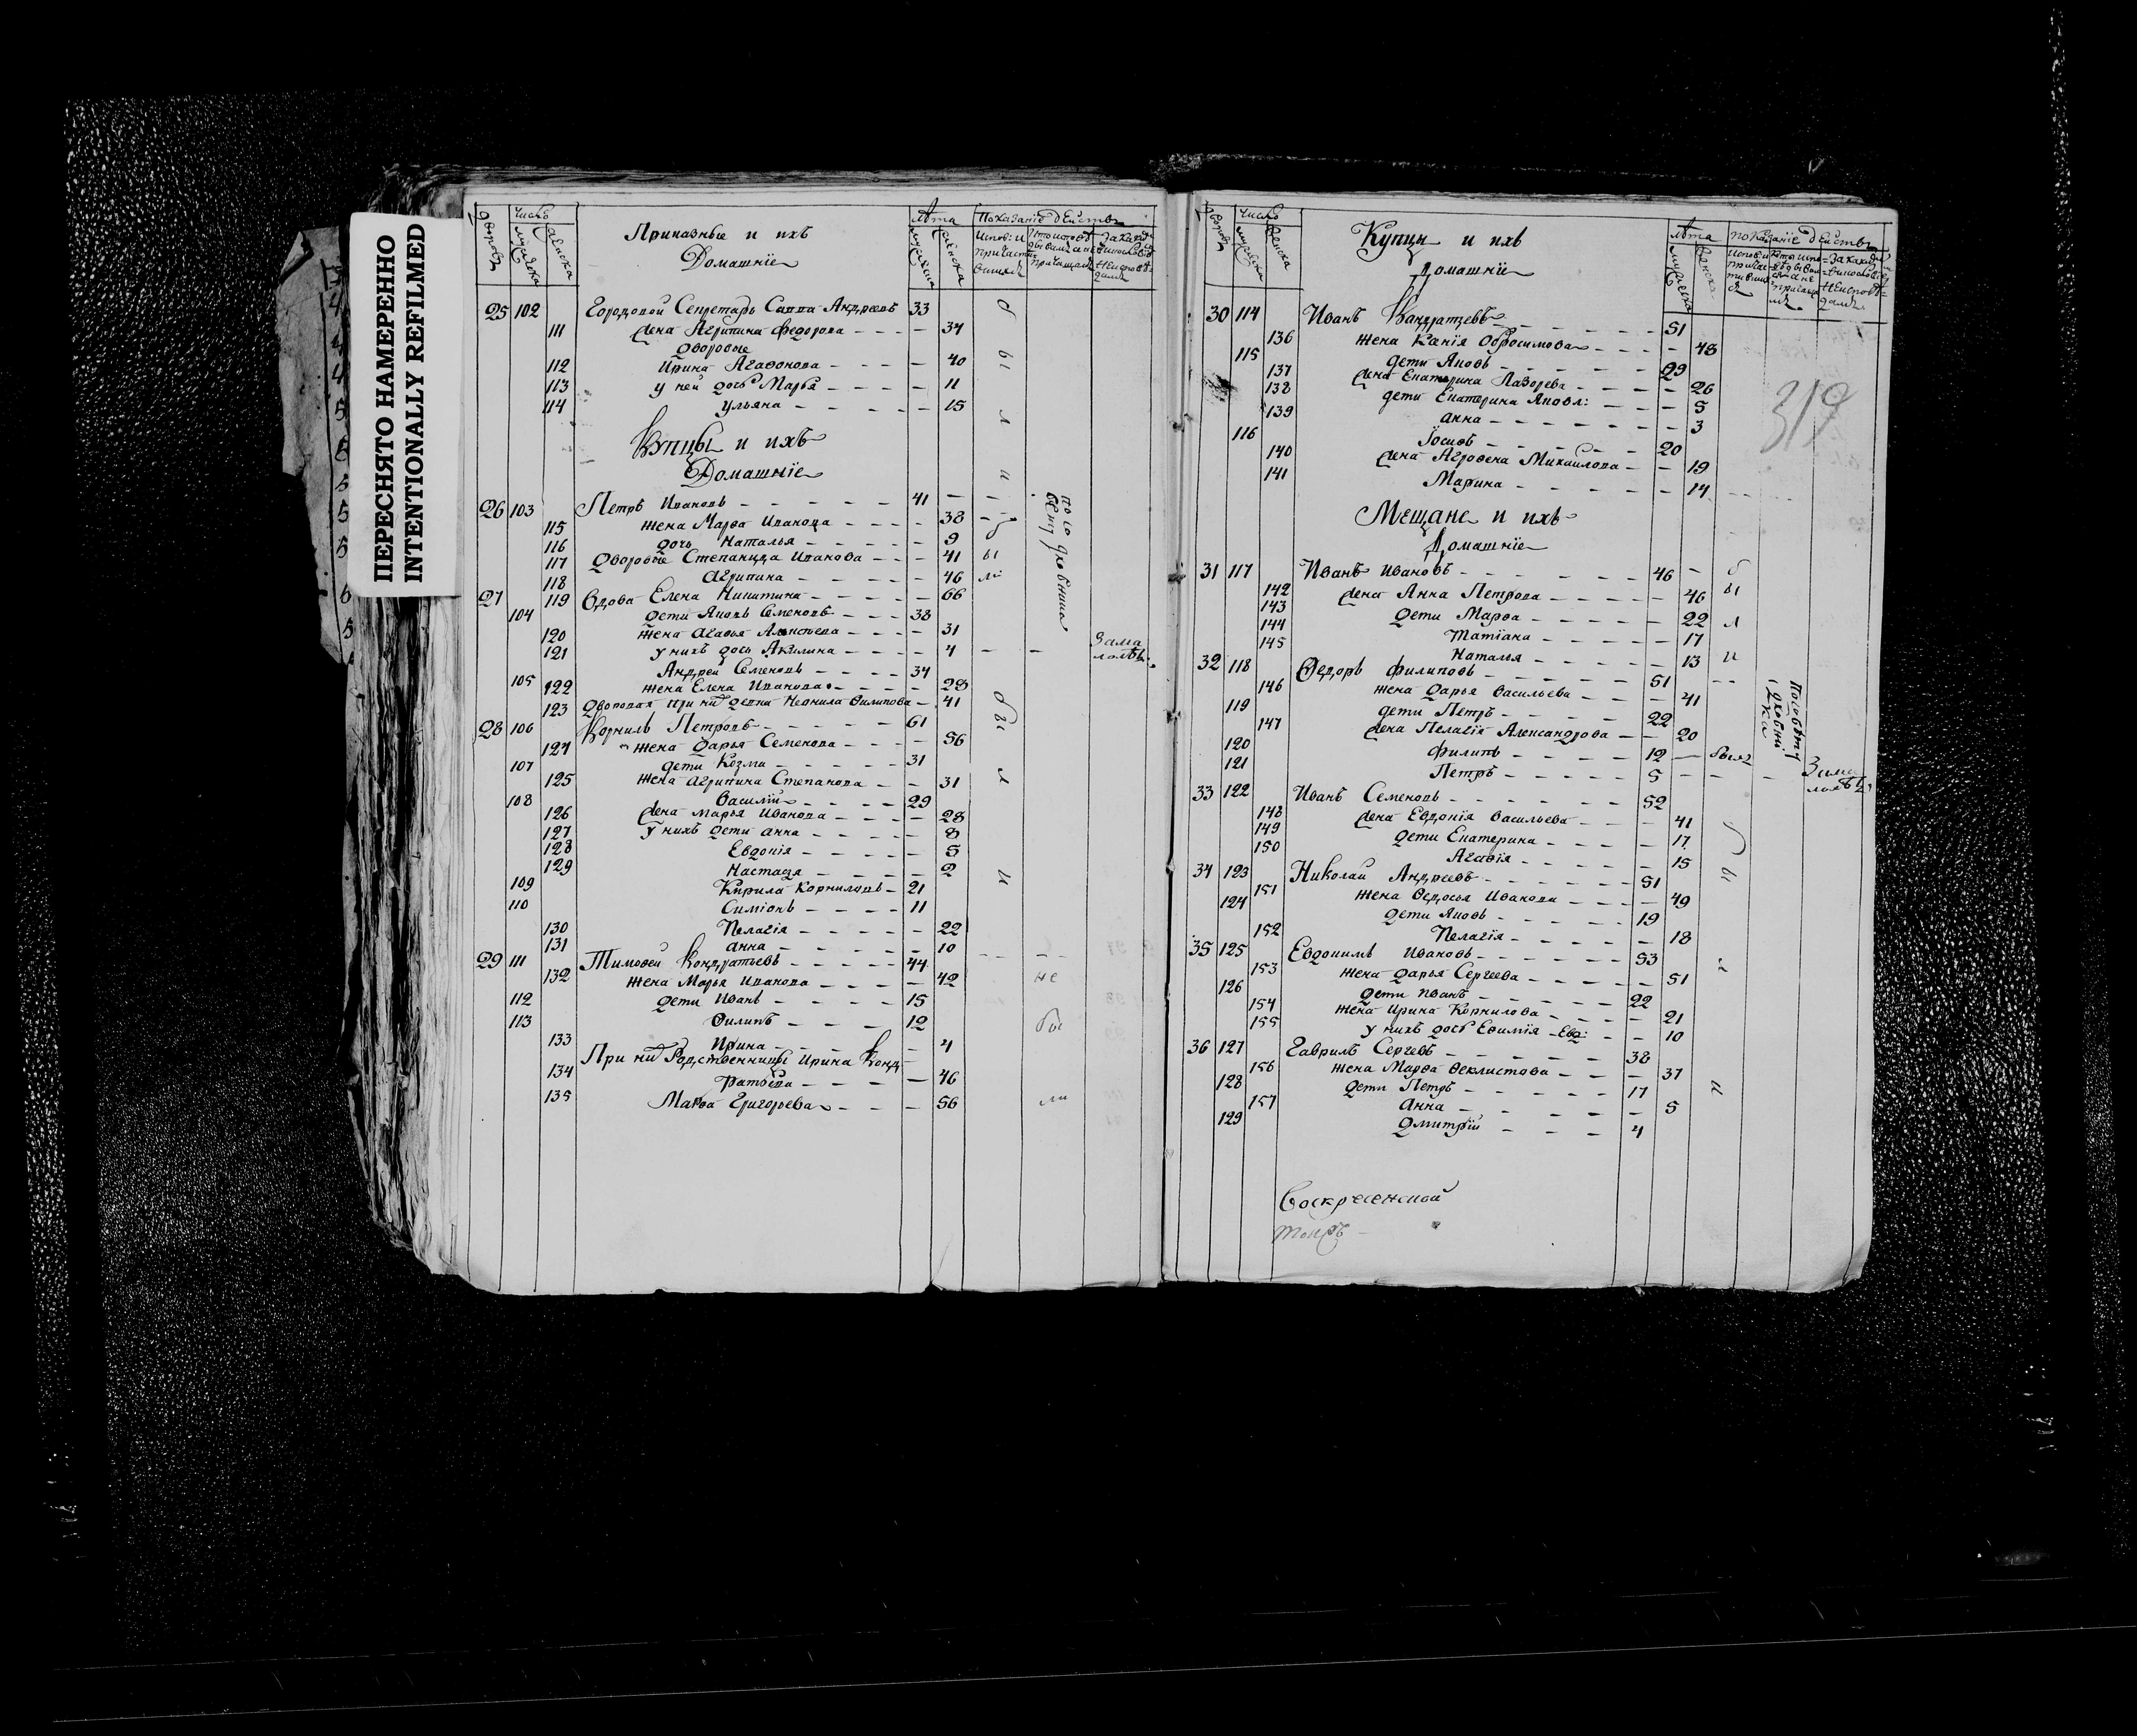 ПЕРЕСНЯТО НАМЕРЕННО
INTENTIONALLY REFILMED
Число
Лѣта
Показанїе дѣйствъ
Приказные и ихъ
Домашнїе
25 102 Городовой Секретарь Савва Андреевъ 33
111 жена Агрипина Федорова 34
Дворовые
112 Ирина Агафонова 40
113 у ней дочь Марья 11
114 Ульяна 15
Купцы и ихъ
Домашнїе
26 103 Петръ Ивановъ 41
115 жена Марѳа Иванова 38
116 дочь Наталья 9
117 Дворовые Степанида Иванова 41
118 Агрипина 46
27 119 Вдова Елена Никитина 66
104 дети Яковъ Семеновъ 38
120 жена Агафья 31
121 у нихъ дочь Акилина 4
105 Андрей Семеновъ 34
122 жена Елена Иванова 28
123 Филипова 41
28 106 Корнилъ Петровъ 61
124 жена Дарья Семенова 56
107 дети Козма 31
125 жена Агрипина Степанова 31
108 Василїй 29
126 жена Марья Иванова 28
127 у нихъ дети Анна 8
128 Евдокїя 5
129 Настасия 2
109 Кирила Корниловъ 21
110 Симїонъ 11
130 Пелагїя 22
131 Анна 10
29 111 Тимоѳей Кондратьевъ 44
132 жена Марья Иванова 42
112 дети Иванъ 15
113 Филипъ 12
133 Ирина 4
134 При нихъ Родственницы Ирина Конд
ратьева 46
135 Марѳа Григорьева 56
Число
Лѣта
показанїе дѣйствъ
Купцы и ихъ
Домашнїе
319
30 114 Иванъ Кандратцевъ 51
136 жена Обросимова 48
115 дети Яковъ 29
137 жена Екатерина Лазорева 26
138 дети Екатерина Яковл: 5
139 Анна 3
116 Їосифъ 20
140 жена Агрофена Михайлова 19
141 Марина 14
Мещане и ихъ
Домашнїе
31 117 Иванъ Ивановъ 46
142 жена Анна Петрова 46
143 дети Марѳа 22
144 Татїана 17
145 Наталья 13
32 118 Ѳедоръ Филиповъ 51
146 жена Дарья Васильева 41
119 дети Петръ 22
147 жена Пелагїя Александрова 20
120 Филипъ 12
121 Петръ 5
33 122 Иванъ Семеновъ 52
148 жена Евдокїя Васильева 41
149 дети Екатерина 17
150 Агафїя 15
34 123 Николай Андреевъ 51
151 жена Ѳедосья Иванова 49
124 дети Яковъ 19
152 Пелагїя 18
35 125 Евдокимъ Ивановъ 53
153 жена Дарья Сергеева 51
126 дети Иванъ 22
154 жена Ирина Корнилова 21
155 у нихъ дочь Евфимїя 10
36 127 Гаврилъ Сергеевъ 38
156 жена Марѳа Феклистова 37
128 дети Петръ 17
157 Анна 5
129 Дмитрїй 4
Воскресенской